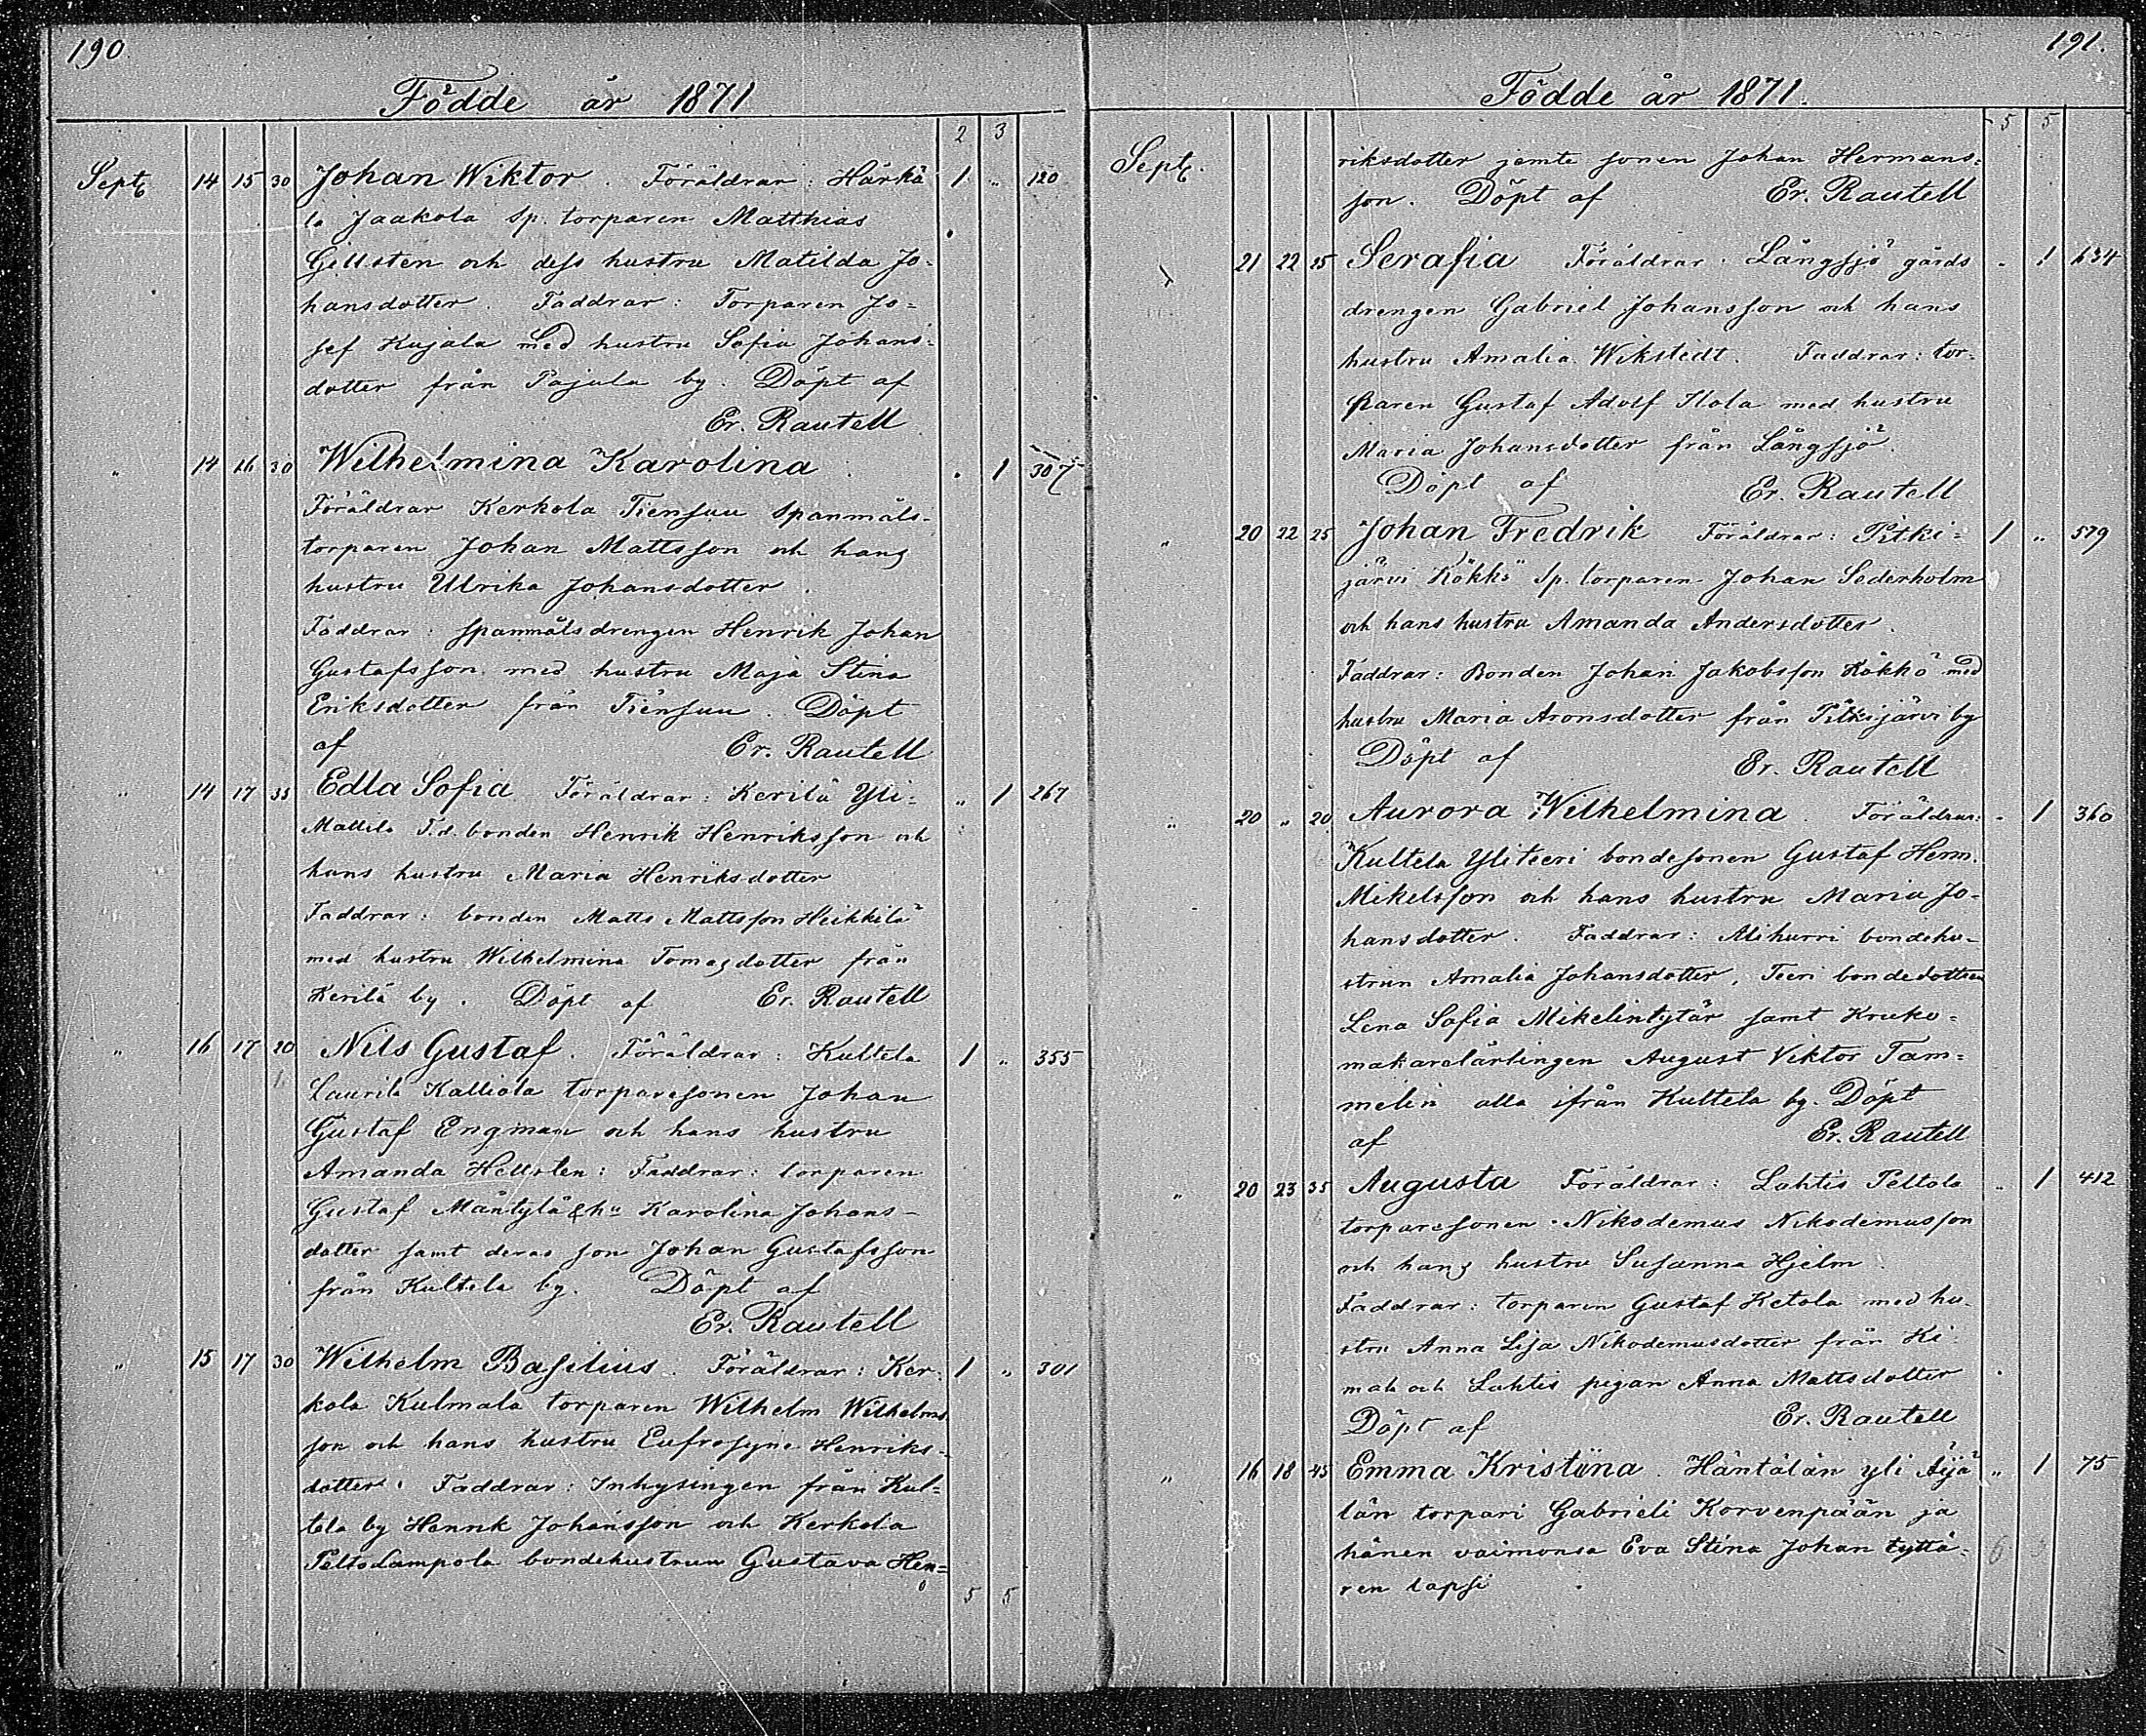 190
Födde år 1871
2 3
Sept 14 15 30 Johan Wiktor. Föräldrar: Härkä 1 " 120
lä Jaakola Sp. torparen Matthias
Gellsten och dess hustru Matilda Jo-
hansdotter. Faddrar: Torparen Jo=
sef Kujala med hustru Sofia Johans-
dotter från Pajula by. Döpt af
Er. Rautell
" 14 16 30 Wilhelmina Karolina " 1 307
Föräldrar Kerkola Tiensuu Spanmåls-
torparen Johan Mattsson och hans
hustru Ulrika Johansdotter.
Faddrar: spanmålsdrengen Henrik Johan
Gustafsson med hustru Maja Stina
Eriksdotter från Tiensuu. Döpt
af Er. Rautell
" 14 17 35 Edla Sofia Föräldrar: Kerilä Yli- " 1 267
Mattila F.d. bonden Henrik Henriksson och
hans hustru Maria Henriksdotter
Faddrar: bonden Matts Mattsson Heikkilä
med hustru Wilhelmina Tomasdotter från
Kerilä by. Döpt af Er. Rautell
" 16 17 20 Nils Gustaf. Föräldrar: Kultela 1 " 355
Laurila Kalliola torparesonen Johan
Gustaf Engman och hans hustru
Amanda Hellsten: Faddrar: torparen
Gustaf Mäntylä & hu Karolina Johans-
dotter samt deras son Johan Gustafsson
från Kultela by. Döpt af
Er. Rautell
" 15 17 30 Wilhelm Basilius. Föräldrar: Ker- 1 " 301
kola Kulmala torparen Wilhelm Wilhelms
son och hans hustru Eufrosyne Henriks-
dotter. Faddrar: Inhysingen från Kul=
tela by Henrik Johansson och Kerkola
Peltolampola bondehustrun Gustava Hen=
5 5
191.
Födde år 1871.
5 5
Sept. riksdotter jemte sonen Johan Hermans=
son. Döpt af Er. Rautell
21 22 25 Serafia Föräldrar: Långsjö gårds " 1 634
drengen Gabriel Johansson och hans
hustru Amalia Wikstedt. Faddrar: tor-
paren Gustaf Adolf Ilola med hustru
Maria Johansdotter från Långsjö.
Döpt af Er. Rautell
" 20 22 25 Johan Fredrik Föräldrar: Pitki= 1 " 579
järvi Kökkö Sp. torparen Johan Sederholm
och hans hustru Amanda Andersdotter.
Faddrar: Bonden Johan Jakobsson Kökkö med
hustru Maria Aronsdotter från Pitkijärvi by
Döpt af Er. Rautell
" 20 " 20 Aurora Wilhelmina. Föräldrar: " 1 360
Kultela Yliteeri bondesonen Gustaf Herm.
Mikelsson och hans hustru Maria Jo-
hansdotter. Faddrar: Alihurri bondehu-
strun Amalia Johansdotter, Teeri bondedottren
Lena Sofia Mikelintytär samt Kruko=
makarelärlingen August Viktor Tam=
melin alla ifrån Kultela by. Döpt
af Er. Rautell
" 20 23 35 Augusta Föräldrar: Lahtis Peltola " 1 412
torparesonen Nikodemus Nikodemusson
och hans hustru Susanna Hjelm.
Faddrar: torparen Gustaf Ketola med hu-
stru Anna Lisa Nikodemusdotter från Ki-
mala och Lahtis pigan Anna Mattsdotter
Döpt af Er. Rautell
" 16 18 45 Emma Kristiina. Häntälän yli Äijä " 1 75
län torpari Gabrieli Korvenpään ja
hänen vaimonsa Eva Stina Johan tyttä- 6
ren lapsi